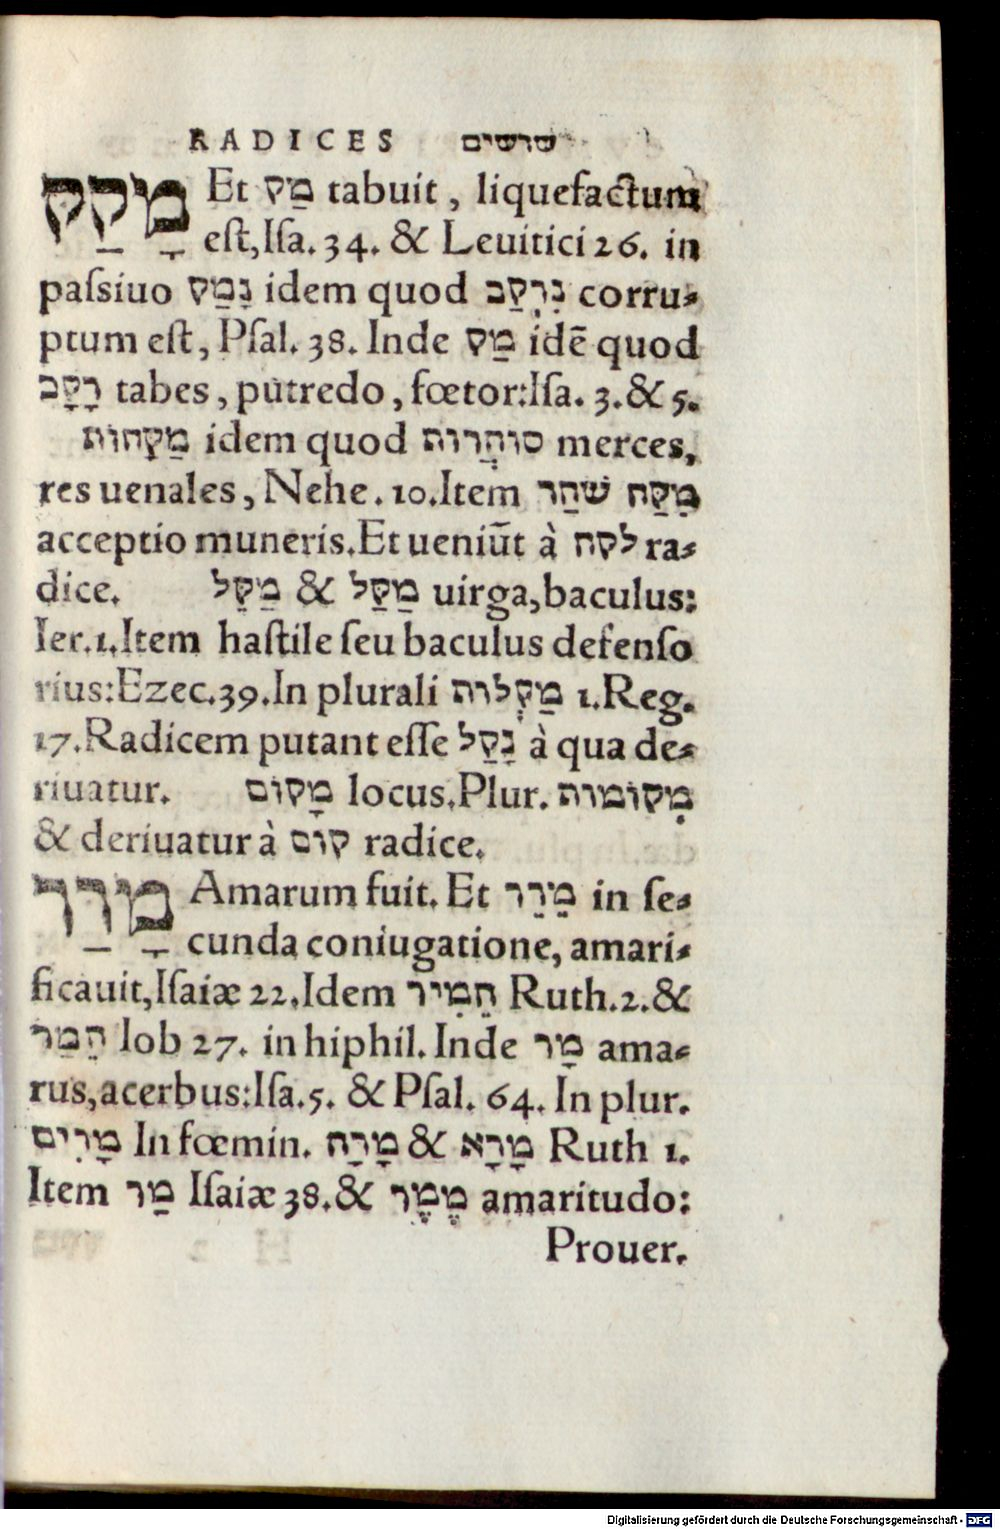 RADICES שרשים
מָקַק Et מַק tabuit, liquefactum
est, Isa. 34. & Leuitici 26. in
passiuo נָמַק idem quod נִרְקַב corru-
ptum est, Psal. 38. Inde מַק idē quod
רָקָב tabes, putredo, fœtor: Isa. 3. & 5.
מַקָחוֹת idem quod סוֹהֲרוֹת merces,
res uenales, Nehe. 10. Item מִקַּח שֹׁחַד
acceptio muneris. Et ueniūt à לקח ra-
dice. מַקֵּל & מַקַּל uirga, baculus:
Ier. 1. Item hastile seu baculus defenso
rius: Ezec. 39. In plurali מַקְלוֹת 1. Reg.
17. Radicem putant esse נָקַל à qua de-
riuatur. מָקוֹם locus. Plur. מְקוֹמוֹת
& deriuatur à קוּם radice.
מָרַר Amarum fuit. Et מָרַר in se-
cunda coniugatione, amari-
ficauit, Isaiæ 22. Idem הֵמִיר Ruth. 2. &
הֵמַר Iob 27. in hiphil. Inde מָר ama-
rus, acerbus: Isa. 5. & Psal. 64. In plur.
מָרִים In fœmin. מָרָה & מָרָא Ruth 1.
Item מַר Isaiæ 38. & מֶמֶר amaritudo:
Prouer.
Digitalisierung gefördert durch die Deutsche Forschungsgemeinschaft - DFG